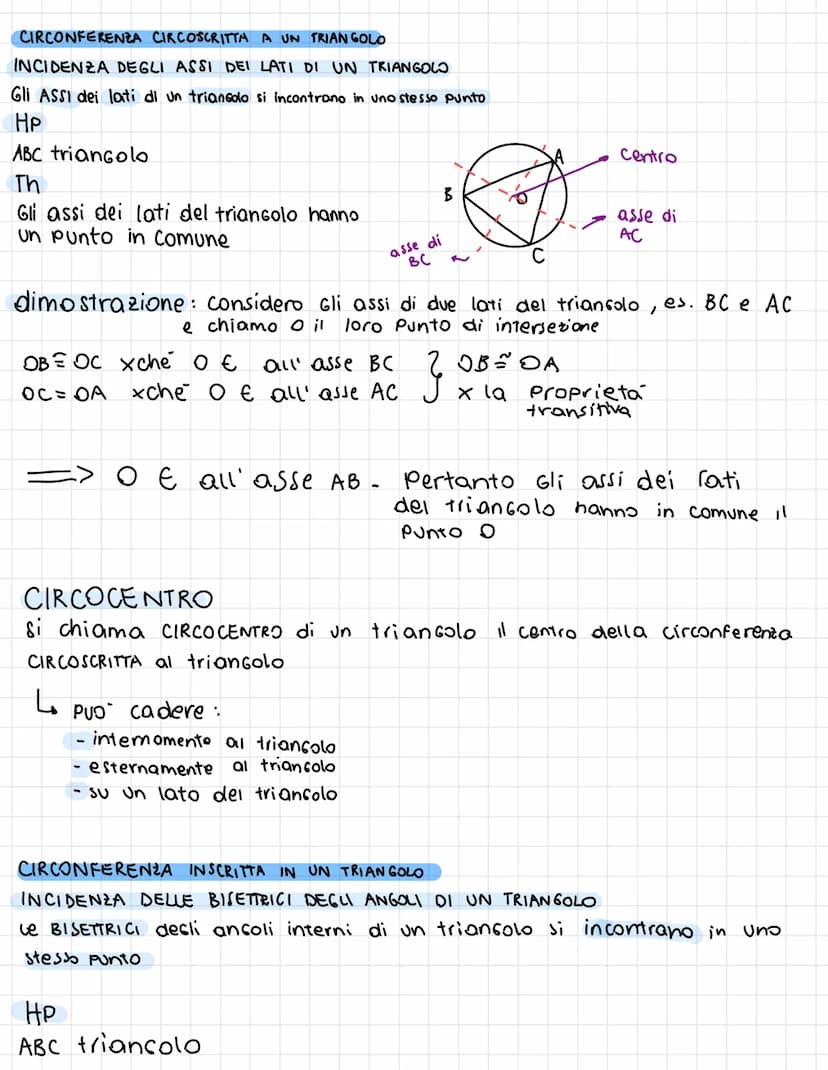 CIRCONFERENZA CIRCOSCRITTA A UN TRIANGOLO
INCIDENZA DEGLI ASSI DEI LATI DI UN TRIANGOLO
Gli ASSI dei lati di un triangolo si incontrano in uno stesso punto
Hp
ABC triangolo
Th
Gli assi dei lati del triangolo hanno
un punto in comune
A
B
C
O
centro
asse di
AC
asse di
BC
dimostrazione: considero gli assi di due lati del triangolo, es. BC e AC
e chiamo O il loro punto di intersezione
OB ≅ OC xché O ∈ all'asse BC } OB ≅ OA
OC = OA xché O ∈ all'asse AC } x la proprietà
transitiva
=> O ∈ all'asse AB - Pertanto gli assi dei lati
del triangolo hanno in comune il
punto O
CIRCOCENTRO
Si chiama CIRCOCENTRO di un triangolo il centro della circonferenza
CIRCOSCRITTA al triangolo
↳ può cadere:
- internamente al triangolo
- esternamente al triangolo
- su un lato del triangolo
CIRCONFERENZA INSCRITTA IN UN TRIANGOLO
INCIDENZA DELLE BISETTRICI DEGLI ANGOLI DI UN TRIANGOLO
Le BISETTRICI degli angoli interni di un triangolo si incontrano in uno
stesso punto
Hp
ABC triangolo